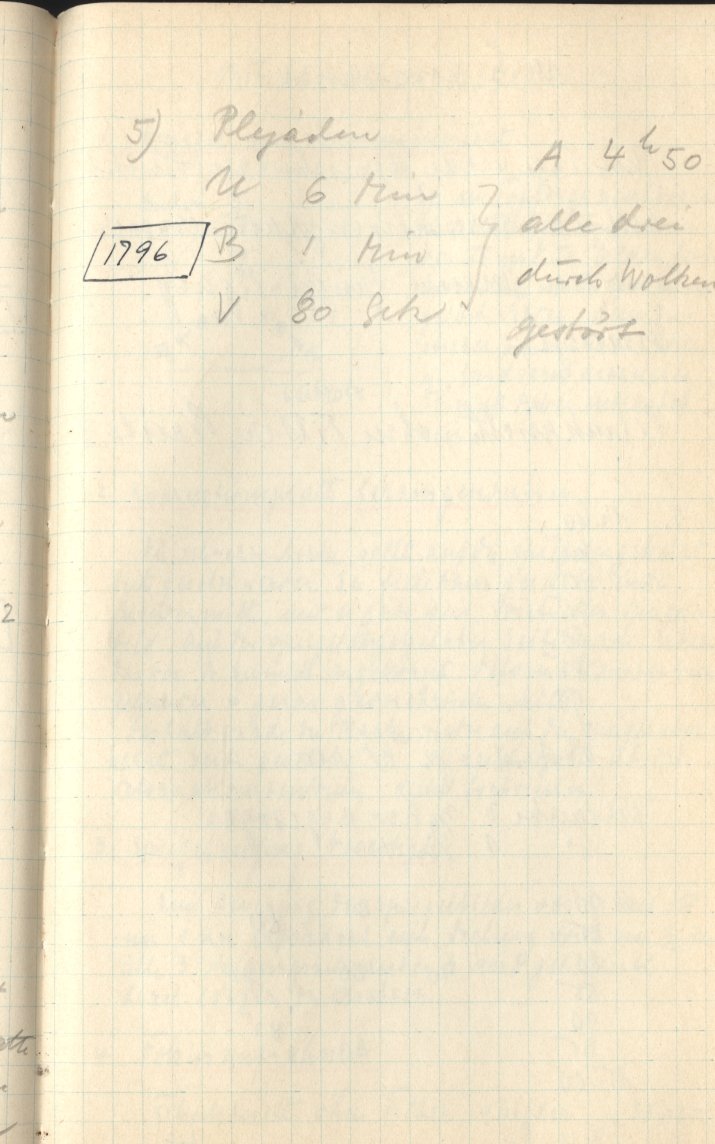 5) Plejaden
A 4h50
U 6 Min
alle drei
1796 B 1 Min
durch Wolken
V 80 Sek
gestört